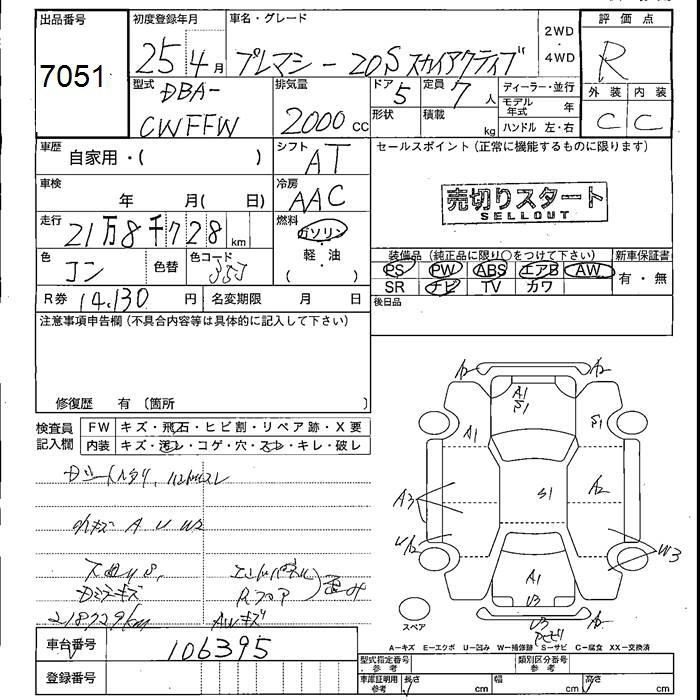 出品番号
7051
初度登録年月
25 4月
車名・グレード
プレマシー 20S スカイアクティブ
2WD
・
4WD
評価点
R
外装 内装
C C
型式
DBA-
CWFFW
排気量
2000 cc
ドア 5
定員 7人
形状
積載 kg
ディーラー・並行
モデル年式 年
ハンドル 左・右
車歴
自家用・( )
シフト
AT
セールスポイント (正常に機能するものに限ります)
売切りスタート
SELLOUT
車検
年 月( 日)
冷房
AAC
走行
21万8千728km
燃料
ガソリン
・
軽・油
( )
色
コン
色替
色コード
35J
装備品 (純正品に限り○をつけて下さい)
新車保証書
PS PW ABS エアB AW
有・無
SR ナビ TV カワ
後日品
R券 14,130円
名変期限 月 日
注意事項申告欄 (不具合内容等は具体的に記入して下さい)
修復歴 有 〔箇所 〕
検査員記入欄
FW キズ・飛石・ヒビ割・リペア跡・X要
内装 キズ・汚レ・コゲ・穴・スレ・キレ・破レ
小キズ A U W2
Rフロア
AWキズ
218729km
A2 A2
A1
S1
A1
S1
A3
S1
A2
U2
W3
A1
U3
U3
A2
スペア
A−キズ E−エクボ U−凹み W−補修跡 S−サビ C−腐食 XX−交換済
車台番号
106395
登録番号
型式指定番号
参考
類別区分番号
参考
車庫証明用
参考
長さ cm
幅 cm
高さ cm